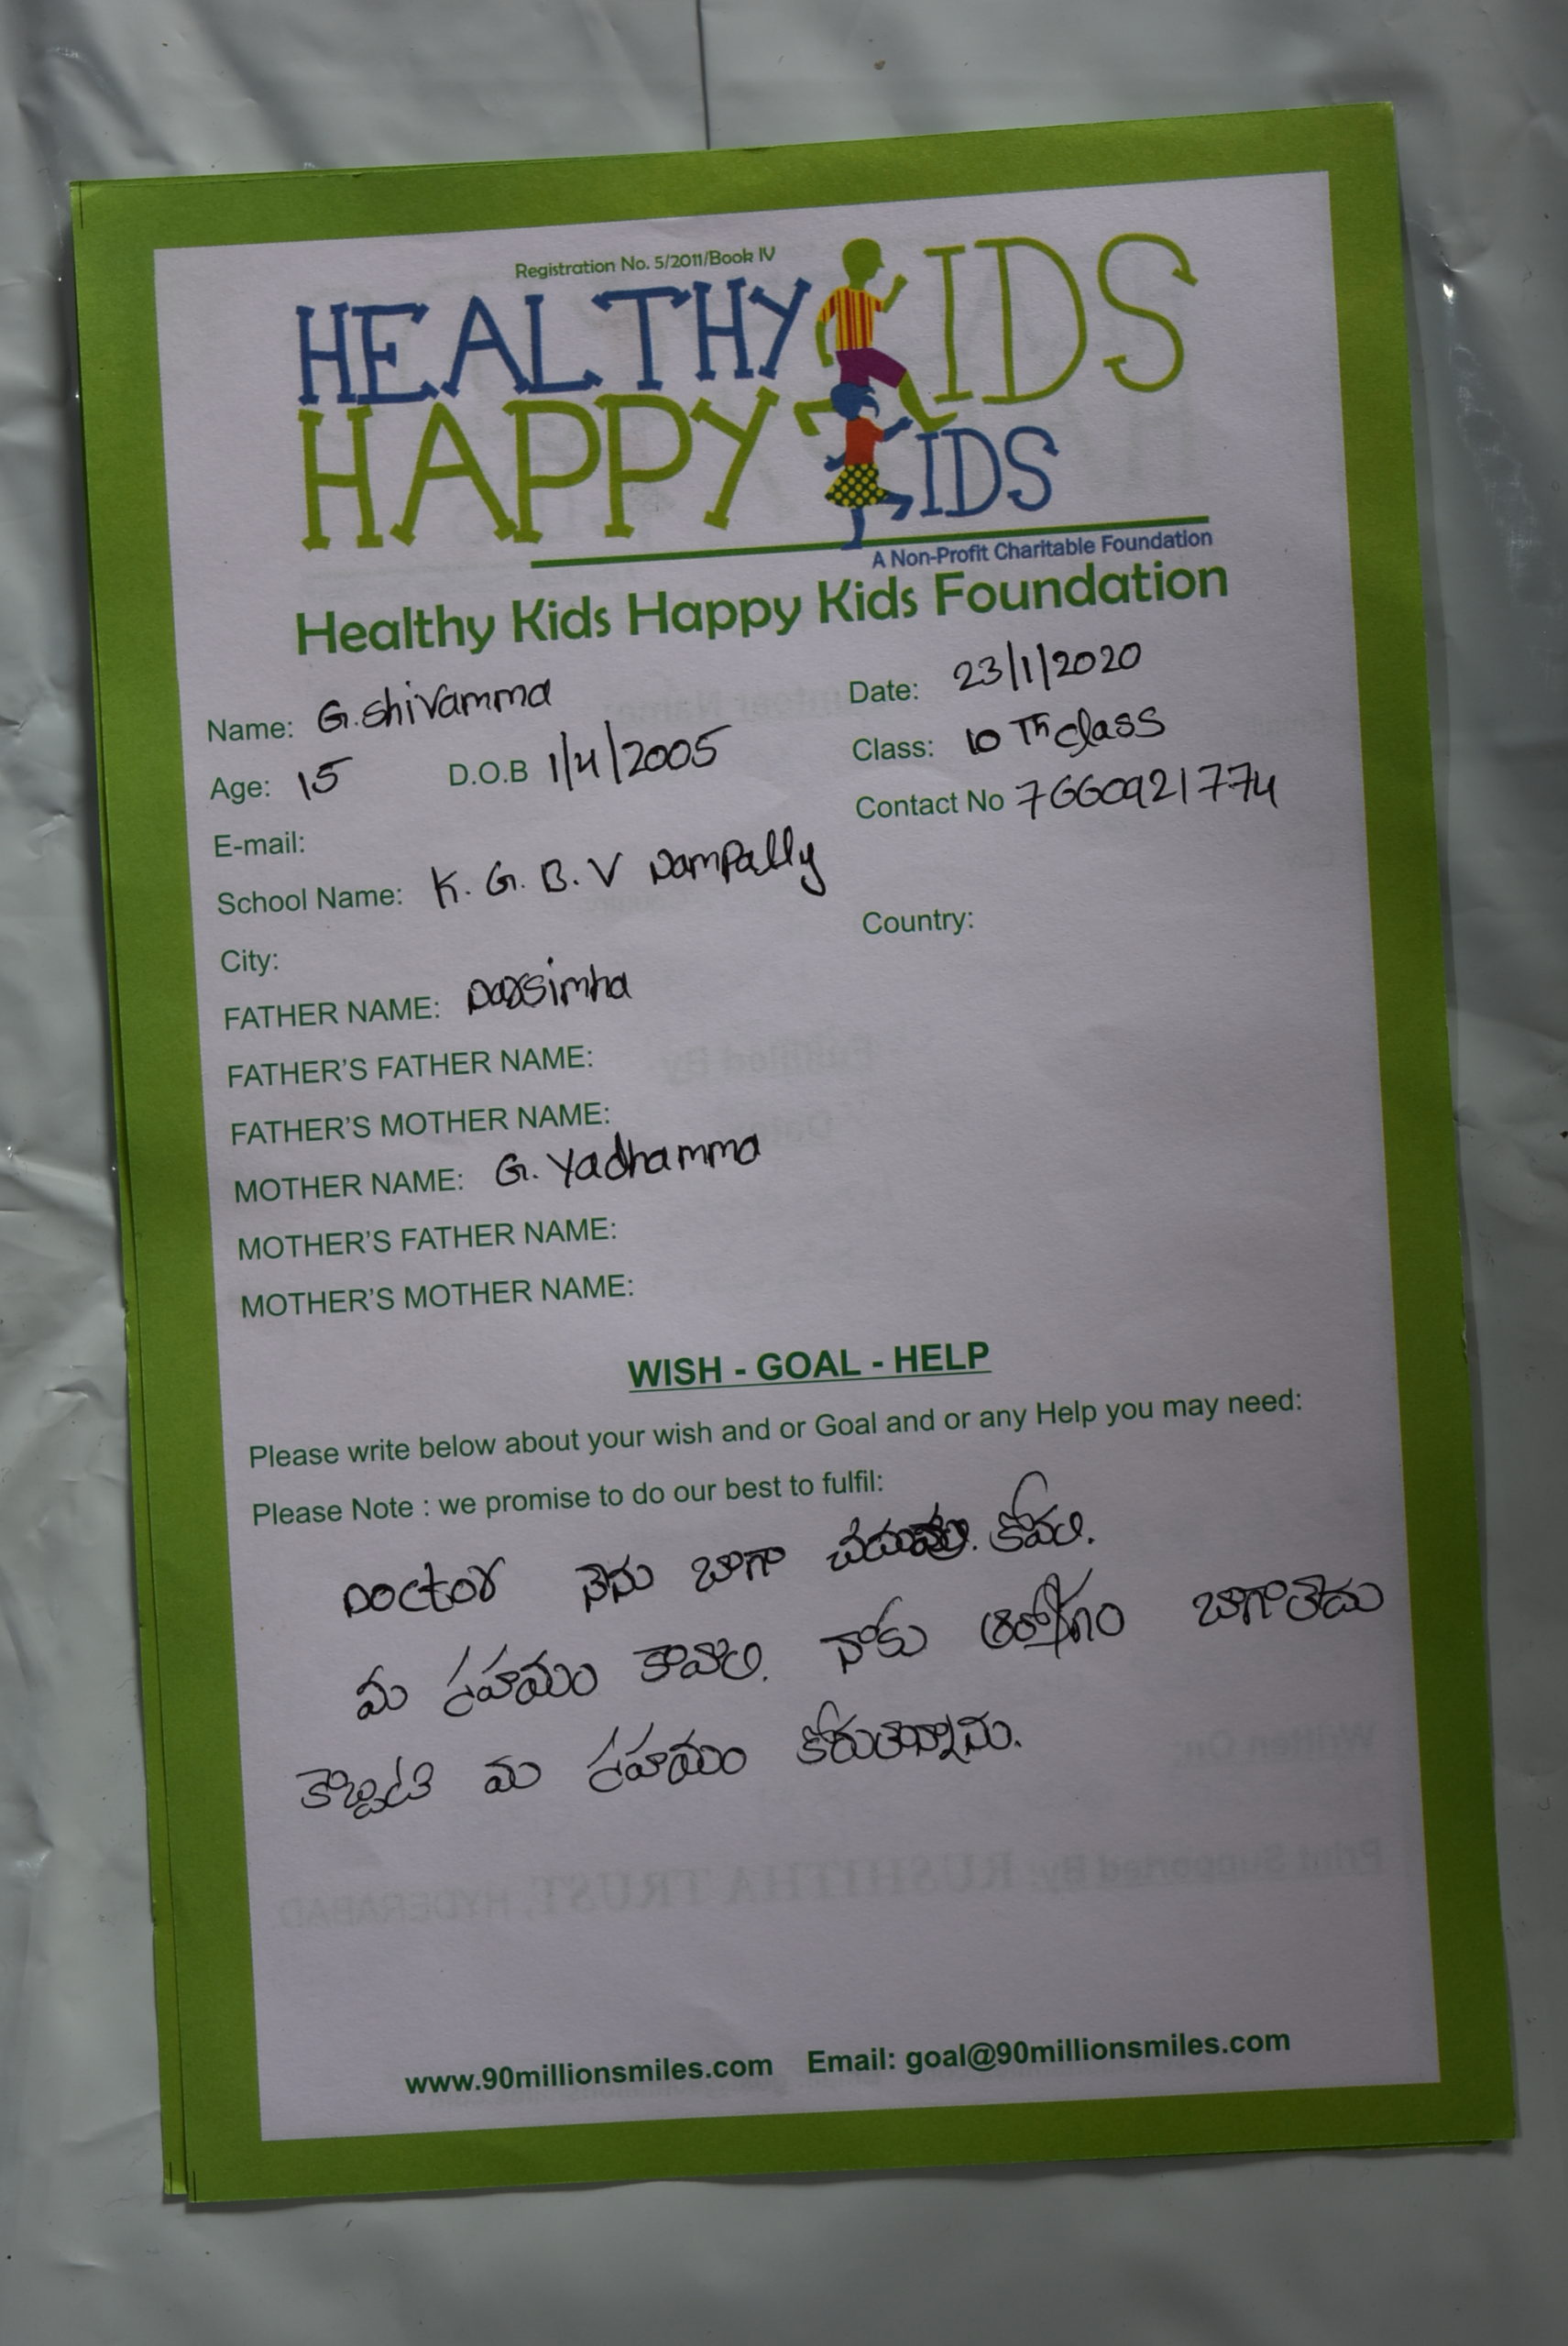 Registration No. 5/2011/Book IV
HEALTHY KIDS
HAPPY KIDS
A Non-Profit Charitable Foundation
Healthy Kids Happy Kids Foundation
Name: G. Shivamma Date: 23/1/2020
Age: 15 D.O.B 1/4/2005 Class: 10 Th class
E-mail: Contact No 7660921774
School Name: K. G. B. V Nampally
City: Country:
FATHER NAME: Narsimha
FATHER'S FATHER NAME:
FATHER'S MOTHER NAME:
MOTHER NAME: G. Yadhamma
MOTHER'S FATHER NAME:
MOTHER'S MOTHER NAME:
WISH - GOAL - HELP
Please write below about your wish and or Goal and or any Help you may need:
Please Note : we promise to do our best to fulfil:
Doctor నేను బాగా
మీ కావాలి. నాకు బాగాలేదు
మీ
www.90millionsmiles.com Email: goal@90millionsmiles.com